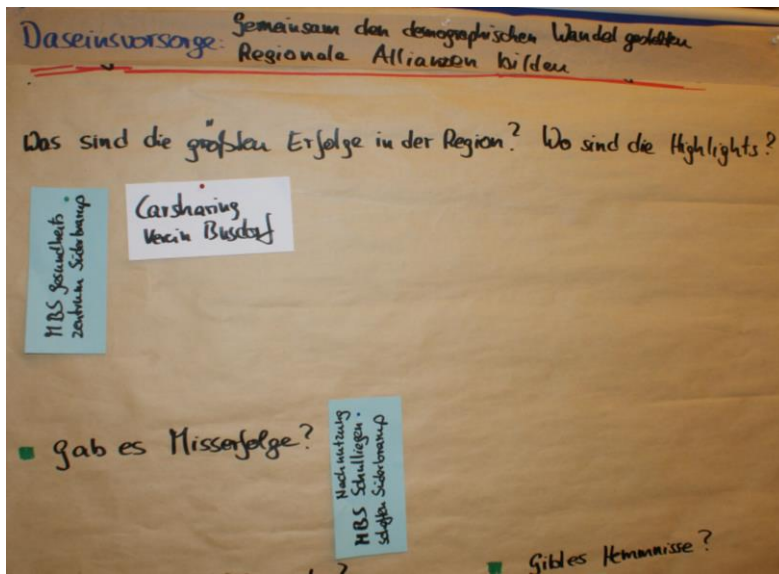 Daseinsvorsorge: Gemeinsam den demographischen Wandel gestalten
Regionale Allianzen bilden
Was sind die größten Erfolge in der Region? Wo sind die Highlights?
MBS Gesundheits
zentrum Süderbrarup
Carsharing
Verein Busdorf
Gab es Misserfolge?
Nachnutzung
MBS Schulliegen.
schaften Süderbrarup
?
Gibt es Hemmnisse?